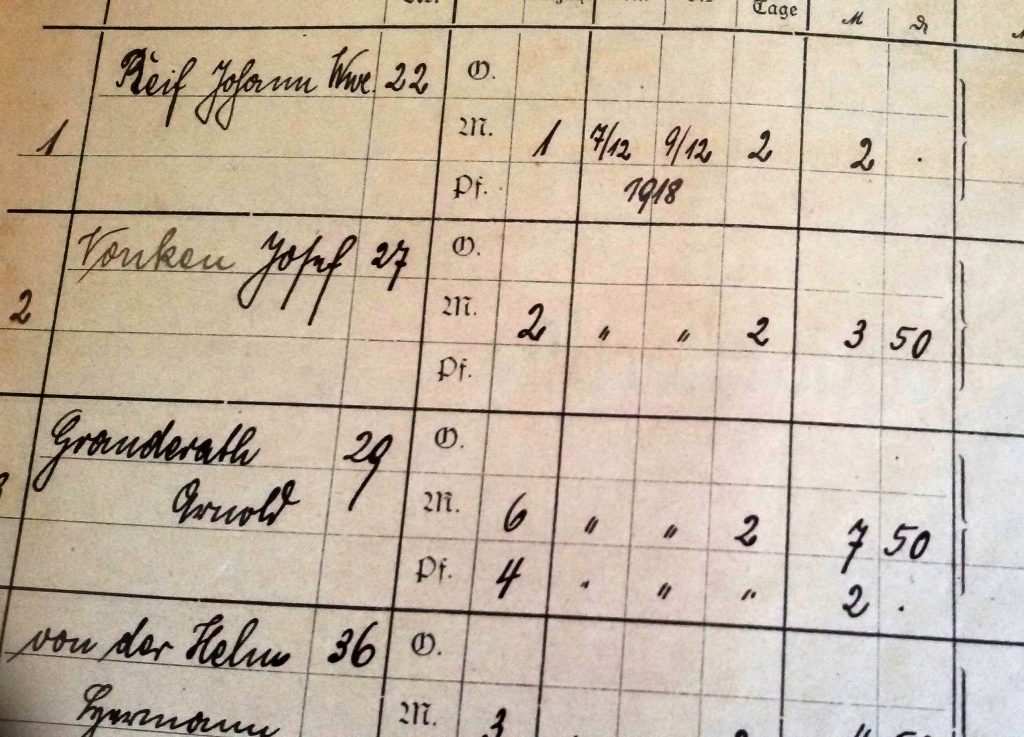 Tage
M
Reif Johann Wwe. 22 O.
1 M. 1 7/12 9/12 2 2 .
Pf. 1918
Vonken Josef 27 O.
2 M. 2 " " 2 3 50
Pf.
Granderath 29 O.
Arnold M. 6 " " 2 7 50
Pf. 4 " " " 2 .
von der Helm 36 O.
Hermann M. 3